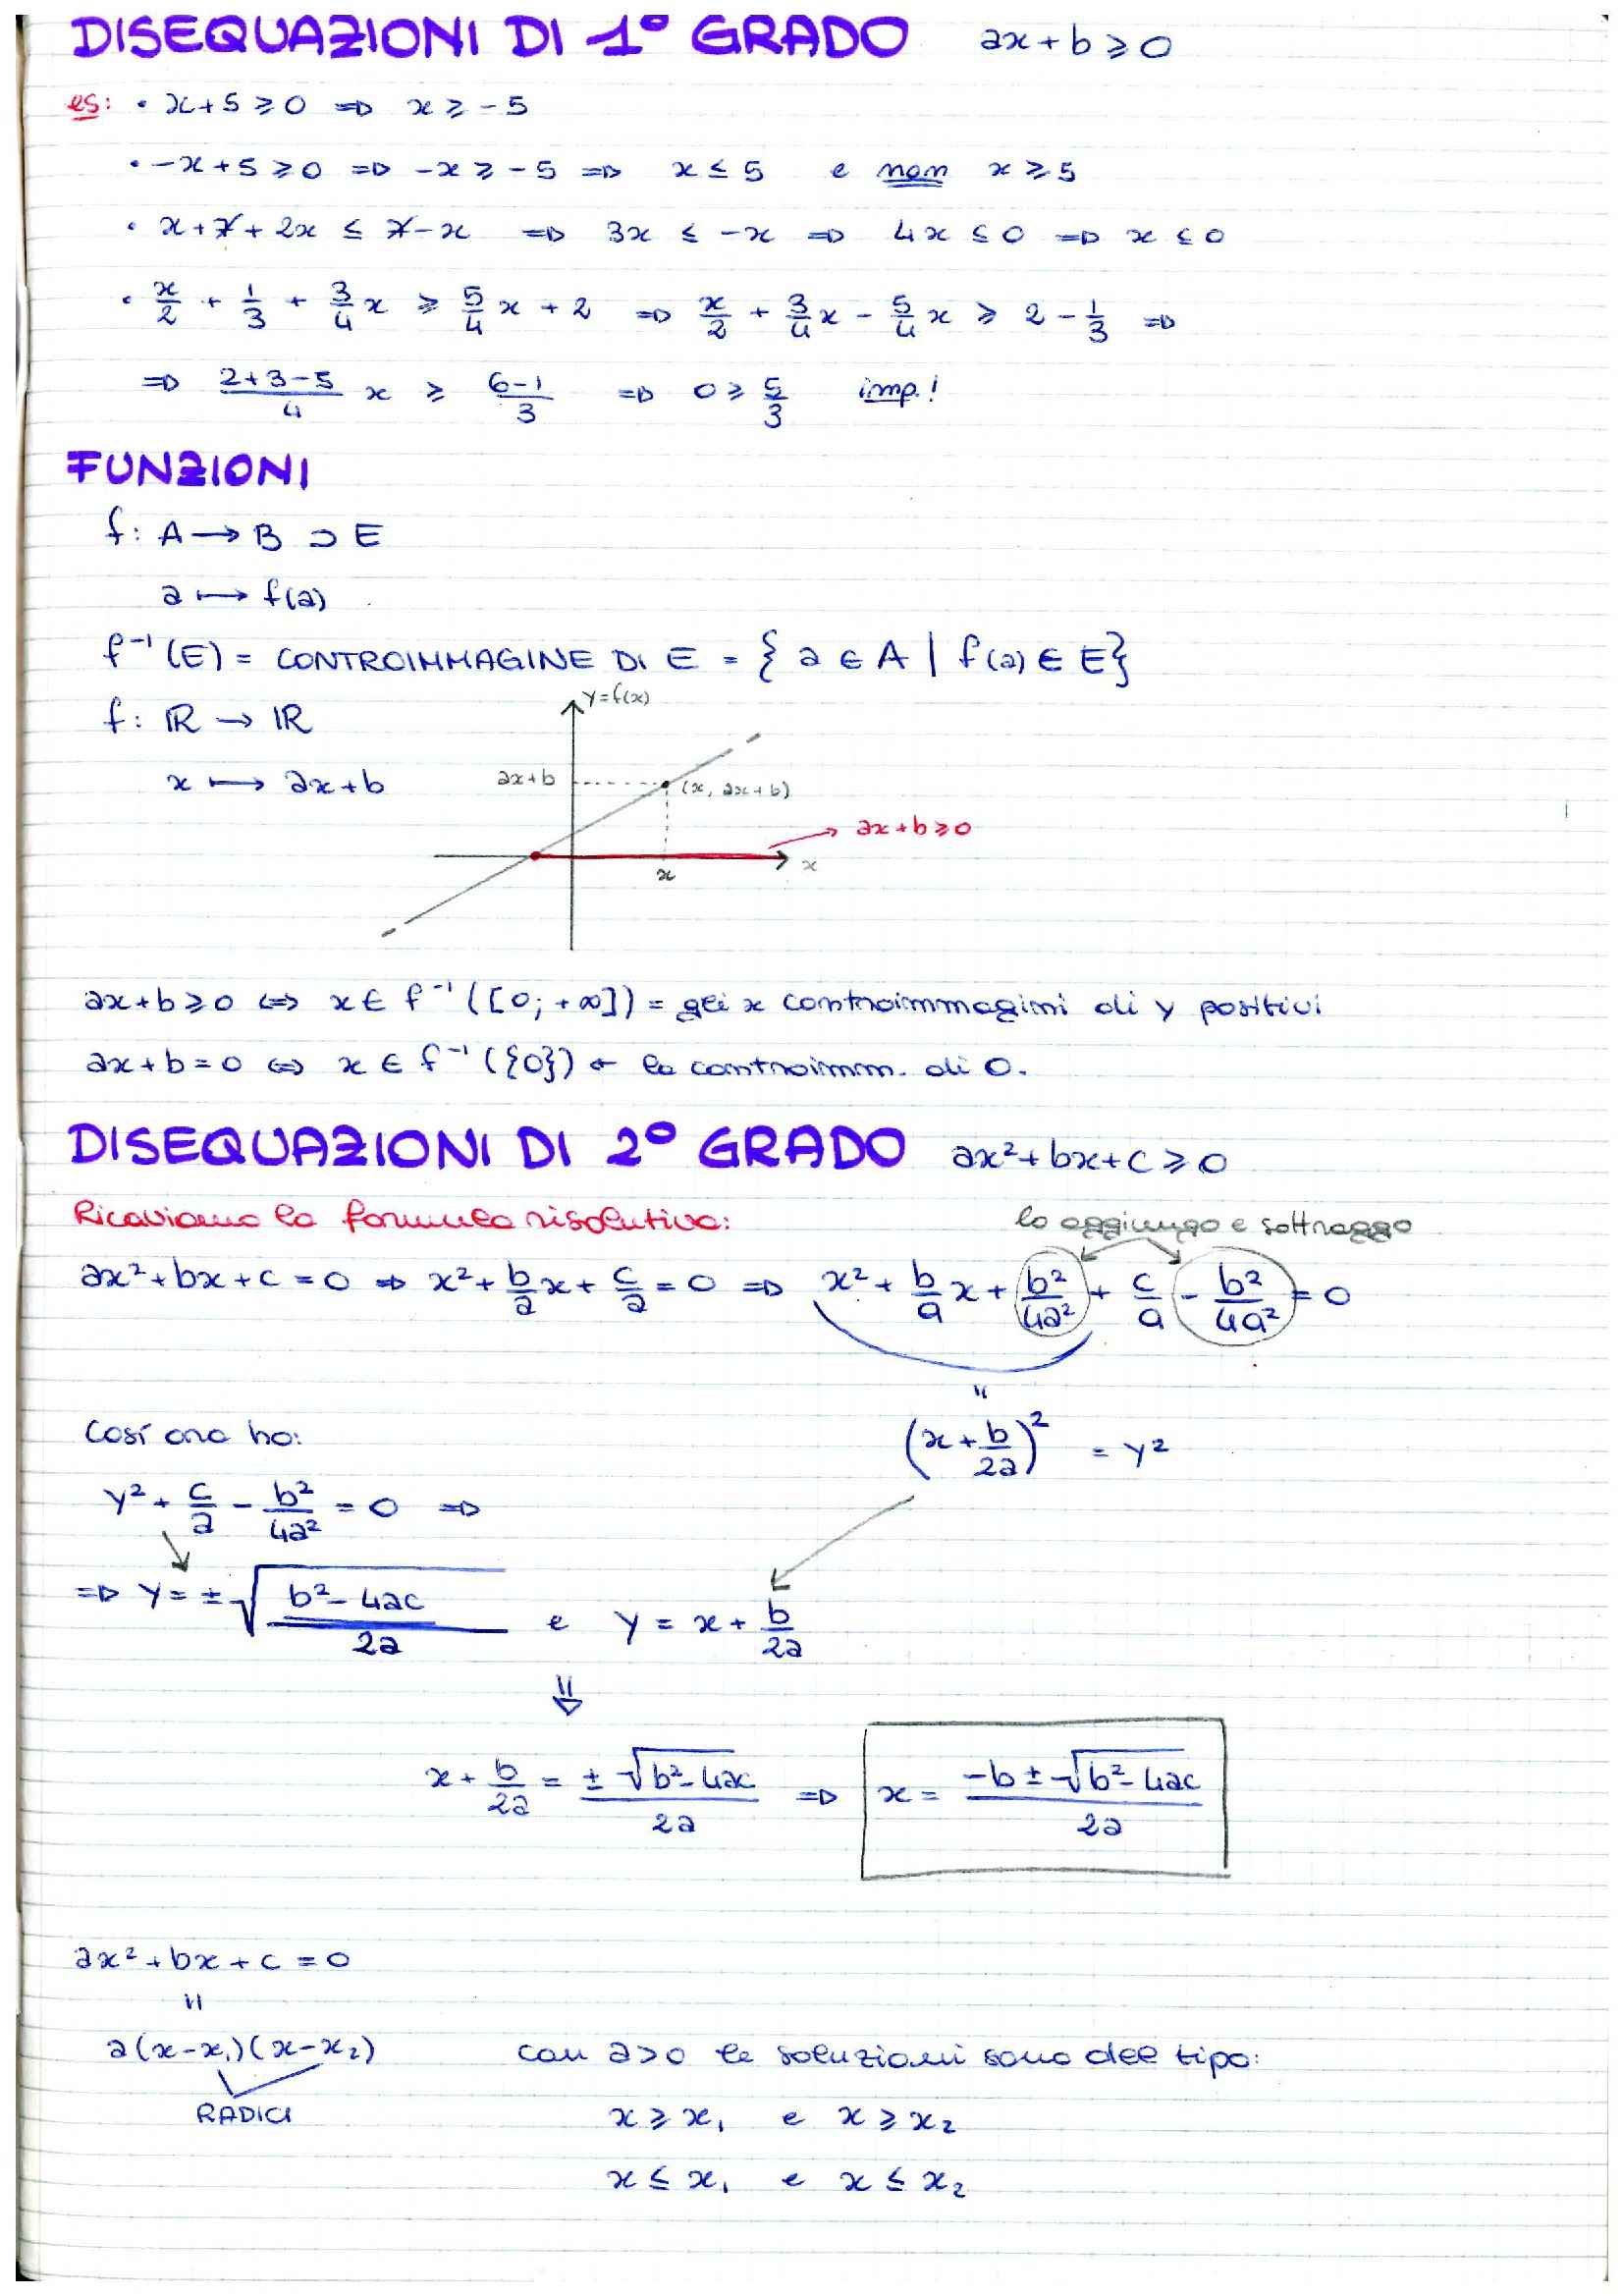 DISEQUAZIONI DI 1° GRADO ax+b≥0
es: • x+5≥0 ⇒ x≥-5
• -x+5≥0 ⇒ -x≥-5 ⇒ x≤5 e non x≥5
• x+7+2x ≤ 7-x ⇒ 3x ≤ -x ⇒ 4x ≤ 0 ⇒ x ≤ 0
• x/2 + 1/3 + 3/4 x ≥ 5/4 x + 2 ⇒ x/2 + 3/4 x - 5/4 x ≥ 2 - 1/3 ⇒
⇒ (2+3-5)/4 x ≥ (6-1)/3 ⇒ 0 ≥ 5/3 imp!
FUNZIONI
f: A → B ⊃ E
a ↦ f(a)
f⁻¹(E) = CONTROIMMAGINE DI E = { a ∈ A | f(a) ∈ E }
y=f(x)
f: ℝ → ℝ
x ↦ ax+b
ax+b
(x, ax+b)
ax+b≥0
x
x
ax+b≥0 ⇔ x ∈ f⁻¹([0; +∞]) = gli x controimmagini di y positivi
ax+b=0 ⇔ x ∈ f⁻¹({0}) ← la controimm. di 0.
DISEQUAZIONI DI 2° GRADO ax²+bx+c≥0
Ricaviamo la formula risolutiva: lo aggiungo e sottraggo
ax²+bx+c=0 ⇒ x²+b/a x+c/a=0 ⇒ x²+b/a x+b²/4a²+c/a-b²/4a²=0
"
Cosí ora ho: (x+b/2a)² = y²
y²+c/a-b²/4a²=0 ⇒
⇒ y=±√((b²-4ac)/2a) e y=x+b/2a
⇓
x+b/2a = ±√(b²-4ac)/2a ⇒ x=(-b±√(b²-4ac))/2a
ax²+bx+c=0
"
a(x-x₁)(x-x₂) con a>0 le soluzioni sono del tipo:
RADICI x≥x₁ e x≥x₂
x≤x₁ e x≤x₂